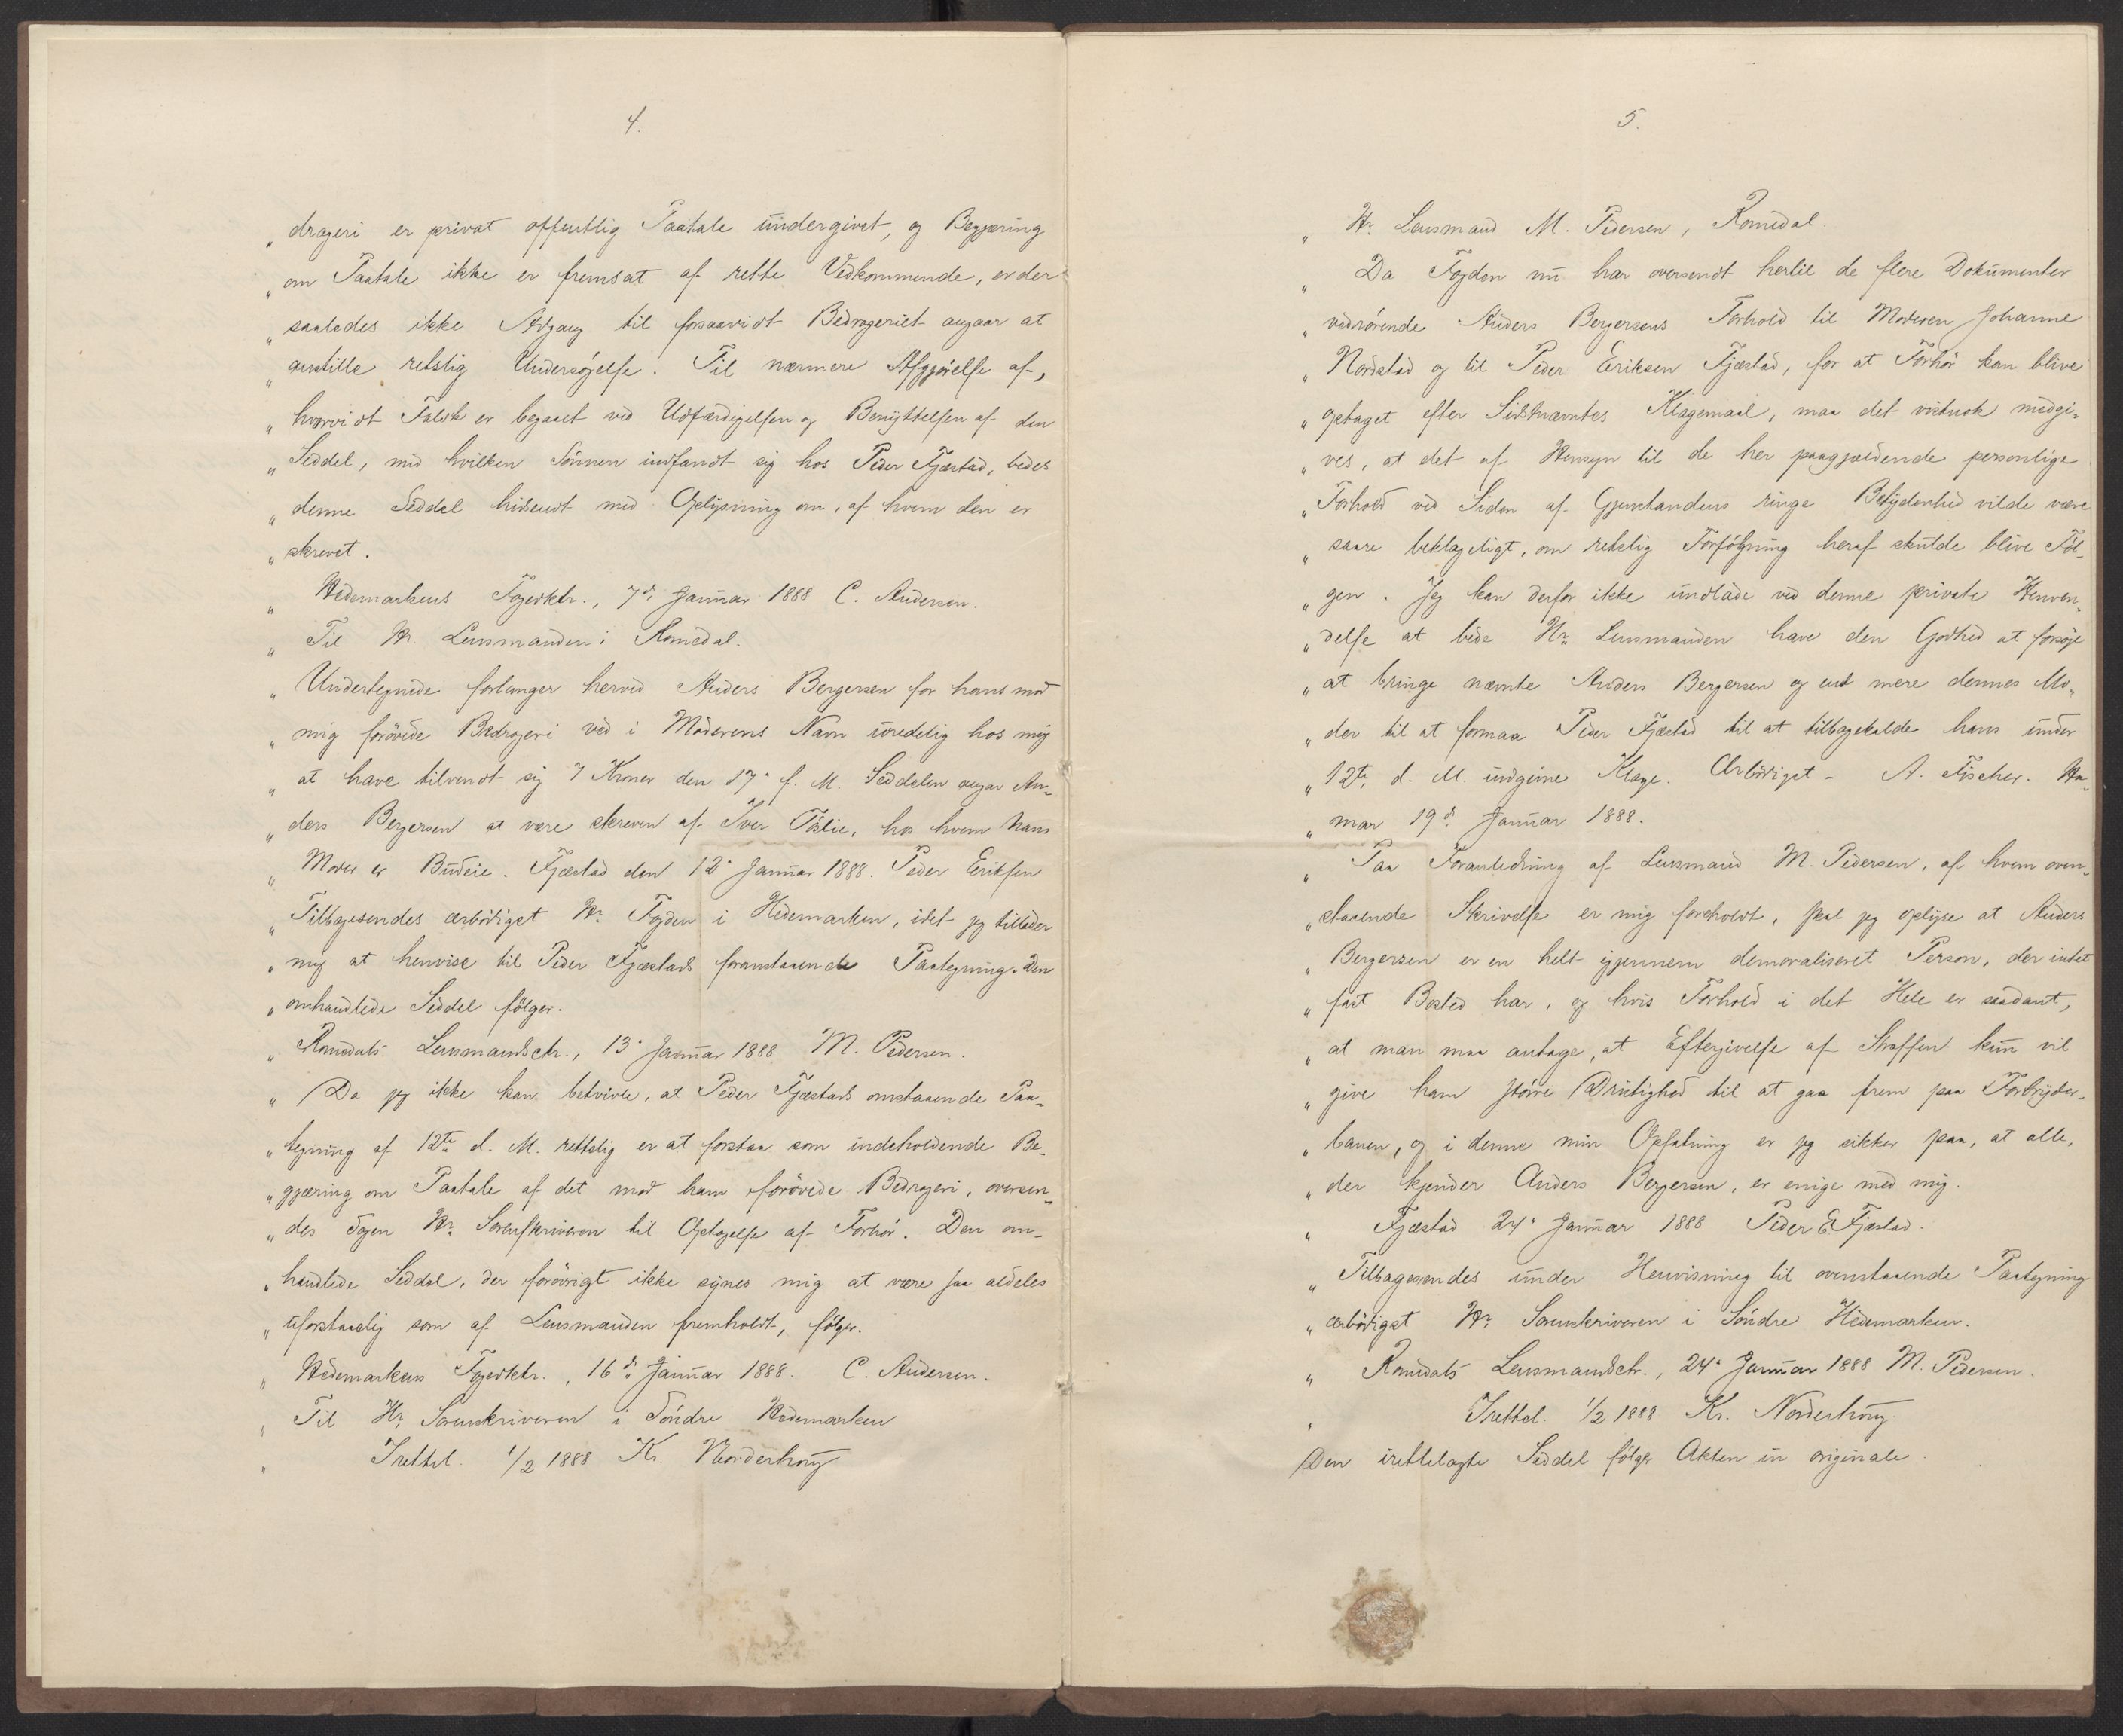 4.
„ drageri er privat offentlig Paatale undergivet, og Begjæring
„ om Paatale ikke er fremsat af rette Vedkommende, er der
„ saaledes ikke Adgang til forsaavidt Bedrageriet angaar at
„ anstille retslig Undersøgelse. Til nærmere Afgjørelse af,
„ hvorvidt Falsk er begaaet ved Udfærdigelsen og Benyttelsen af den
„ Seddel, med hvilken Sønnen indfandt sig hos Peder Fjæstad, bedes
„ denne Seddel hidsendt med Oplysning om, af hvem den er
„ skrevet.
„ Hedemarkens Fogedktr., 7d. Januar 1888 C. Andersen.
„ Til Hr. Lensmanden i Romedal.
„ Undertegnede forlanger herved Anders Bergersen for hans mod
„ mig forøvede Bedrageri ved i Moderens Navn uredelig hos mig
„ at have tilvendt sig 7 Kroner den 17. f. M. Seddelen angav An-
„ ders Bergersen at være skreven af Iver , hos hvem hans
„ Moder er Budeie. Fjæstad den 12. Januar 1888. Peder Eriksen
„ Tilbagesendes ærbødigst Hr. Fogden i Hedemarken, idet jeg tillader
„ mig at henvise til Peder Fjæstads foranstaaende Paategning. Den
„ omhandlede Seddel følger.
„ Romedals Lensmandsctr., 13. Januar 1888 M. Pedersen.
„ Da jeg ikke kan betvivle, at Peder Fjæstads omstaaende Paa-
„ tegning af 12te d. M. rettelig er at forstaa som indeholdende Be-
„ gjæring om Paatale af det mod ham forøvede Bedrageri, oversen-
„ des Sagen Hr. Sorenskriveren til Optagelse af Forhør. Den om-
„ handlede Seddel, der forøvrigt ikke synes mig at være saa aldeles
„ uforstaaelig som af Lensmanden fremholdt, følger.
„ Hedemarkens Fogedktr., 16d. Januar 1888. C. Andersen.
„ Til Hr. Sorenskriveren i Søndre Hedemarken
„ Irettel. 1/2 1888 Kr. Norderhoug
5.
„ Hr. Lensmand M. Pedersen, Romedal.
„ Da Fogden nu har oversendt hertil de flere Dokumenter
„ vedrørende Anders Bergersens Forhold til Moderen Johanne
„ Nordstad og til Peder Eriksen Fjæstad, for at Forhør kan blive
„ optaget efter Sidstnævntes Klagemaal, maa det vistnok medgi-
„ ves, at det af Hensyn til de her paagjældende personlige
„ Forhold ved Siden af Gjenstandens ringe Betydenhed vilde være
„ saare beklageligt, om retslig Forfølgning heraf skulde blive Føl-
„ gen. Jeg kan derfor ikke undlade ved denne private Henven-
„ delse at bede Hr. Lensmanden have den Godhed at forsøge
„ at bringe nævnte Anders Bergersen og end mere dennes Mo-
„ der til at formaa Peder Fjæstad til at tilbagekalde hans under
„ 12te d. M. indgivne Klage. Ærbødigst – A. Fischer. Ha-
„ mar 19d. Januar 1888.
„ Paa Foranledning af Lensmand M. Pedersen, af hvem oven-
„ staaende Skrivelse er mig foreholdt, skal jeg oplyse at Anders
„ Bergersen er en helt igjennem demoraliseret Person, der intet
„ fast Bosted har, og hvis Forhold i det Hele er saadant,
„ at man maa antage, at Eftergivelse af Straffen kun vil
„ give ham større Dristighed til at gaa frem paa Forbryder-
„ banen, og i denne min Opfatning er jeg sikker paa, at alle,
„ der kjender Anders Bergersen, er enige med mig.
„ Fjæstad 24. Januar 1888 Peder E Fjæstad.
„ Tilbagesendes under Henvisning til ovenstaaende Paategning
„ ærbødigst Hr. Sorenskriveren i Søndre Hedemarken.
„ Romedals Lensmandsctr., 24. Januar 1888 M. Pedersen.
„ Irettel. 1/2 1888 Kr. Norderhoug
Den irettelagte Seddel følger Akten in originale.